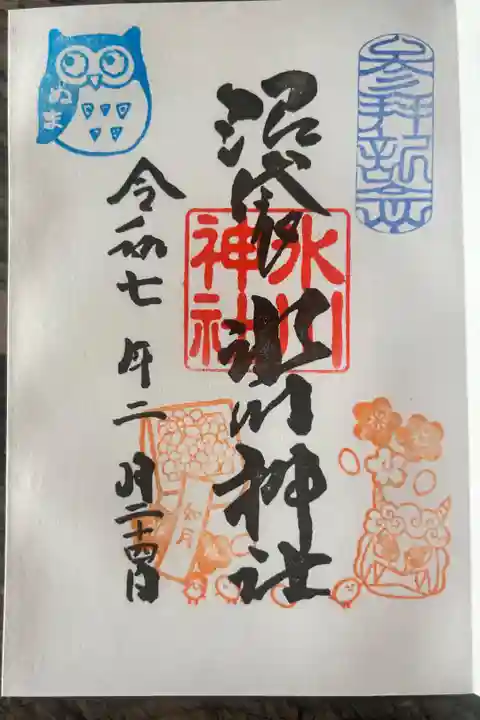 参拝記念
沼袋氷川神社
氷川
神社
ぬま
令和七年二月二十四日
如月